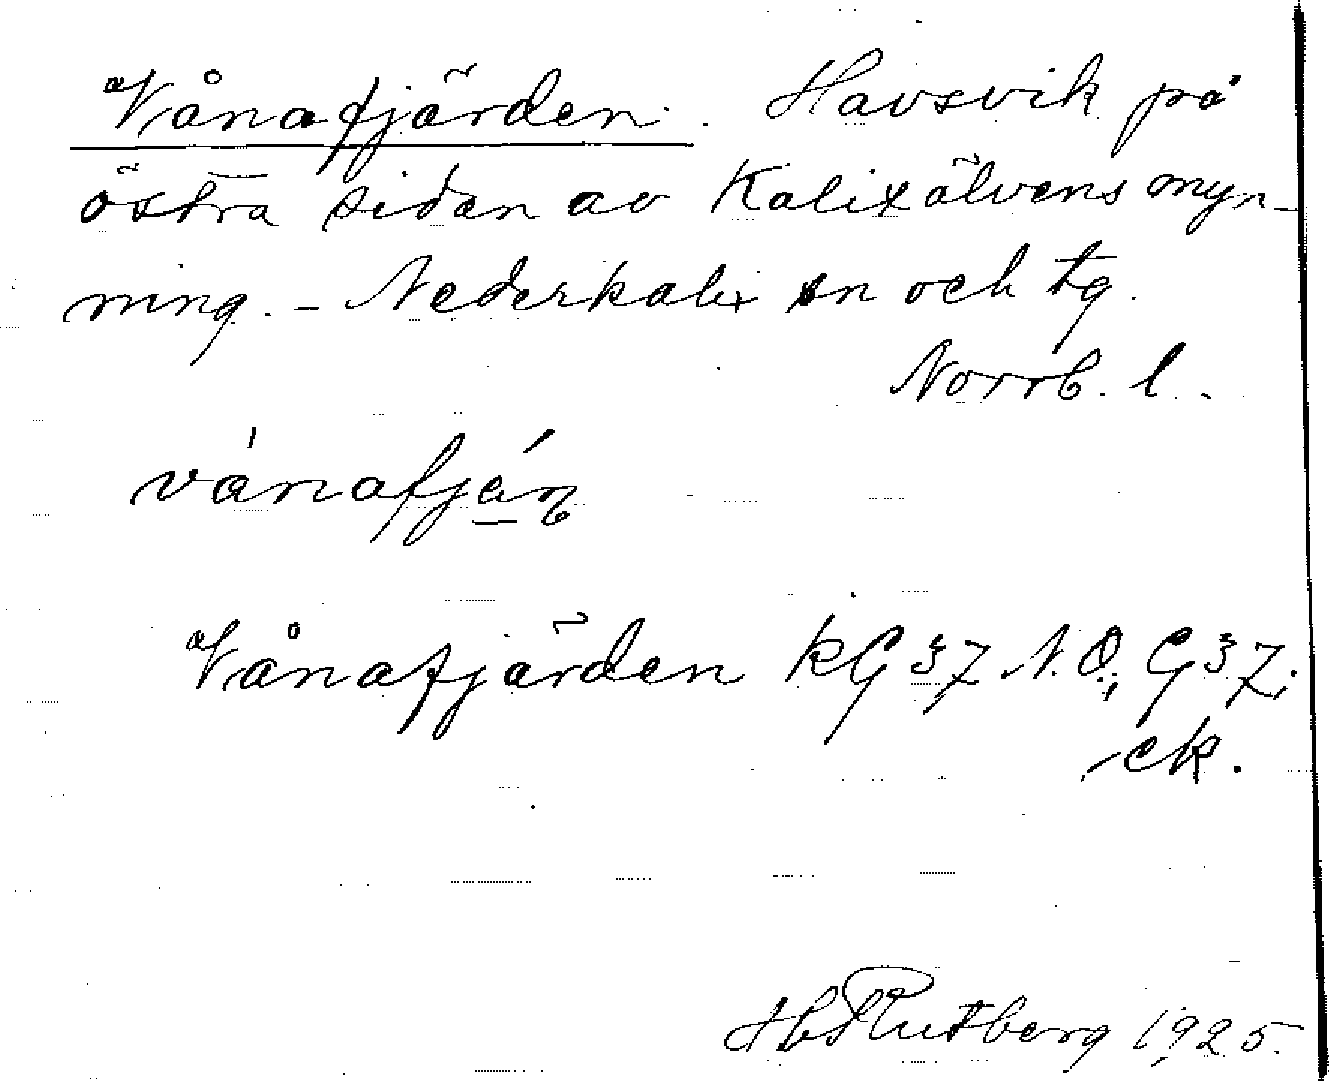 Vånafjärden. Havsvik på
östra sidan av Kalixälvens myn-
ning. – Nederkalix sn och tg.
Norrb. l.
Vånafjärden kG37 N.O., G37;
ek.
H Rutberg 1925.